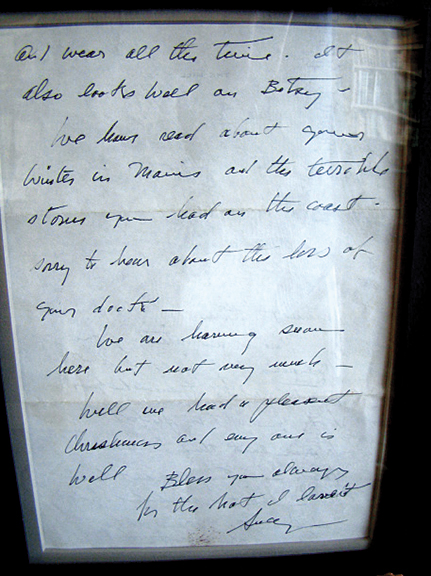 and wear all the time. It
also looks well on Betsy –
We have read about your
winter in Maine and the terrible
storms you had on the coast.
sorry to hear about the loss of
your dock –
We are having snow
here but not very much –
Well we had a pleasant
Christmas and every one is
well Bless you always
for the hat I love it